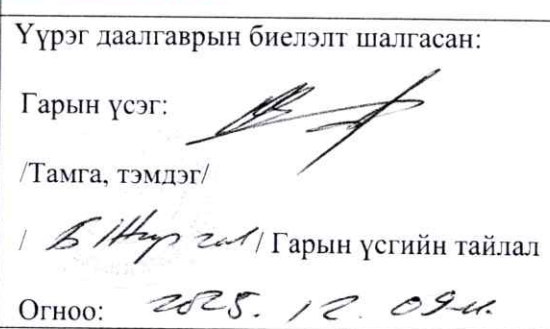 Үүрэг даалгаврын биелэлт шалгасан:
Гарын үсэг:
/Тамга, тэмдэг/
/ Б Жаргал / Гарын үсгийн тайлал
Огноо: 2025. 12. 09н.